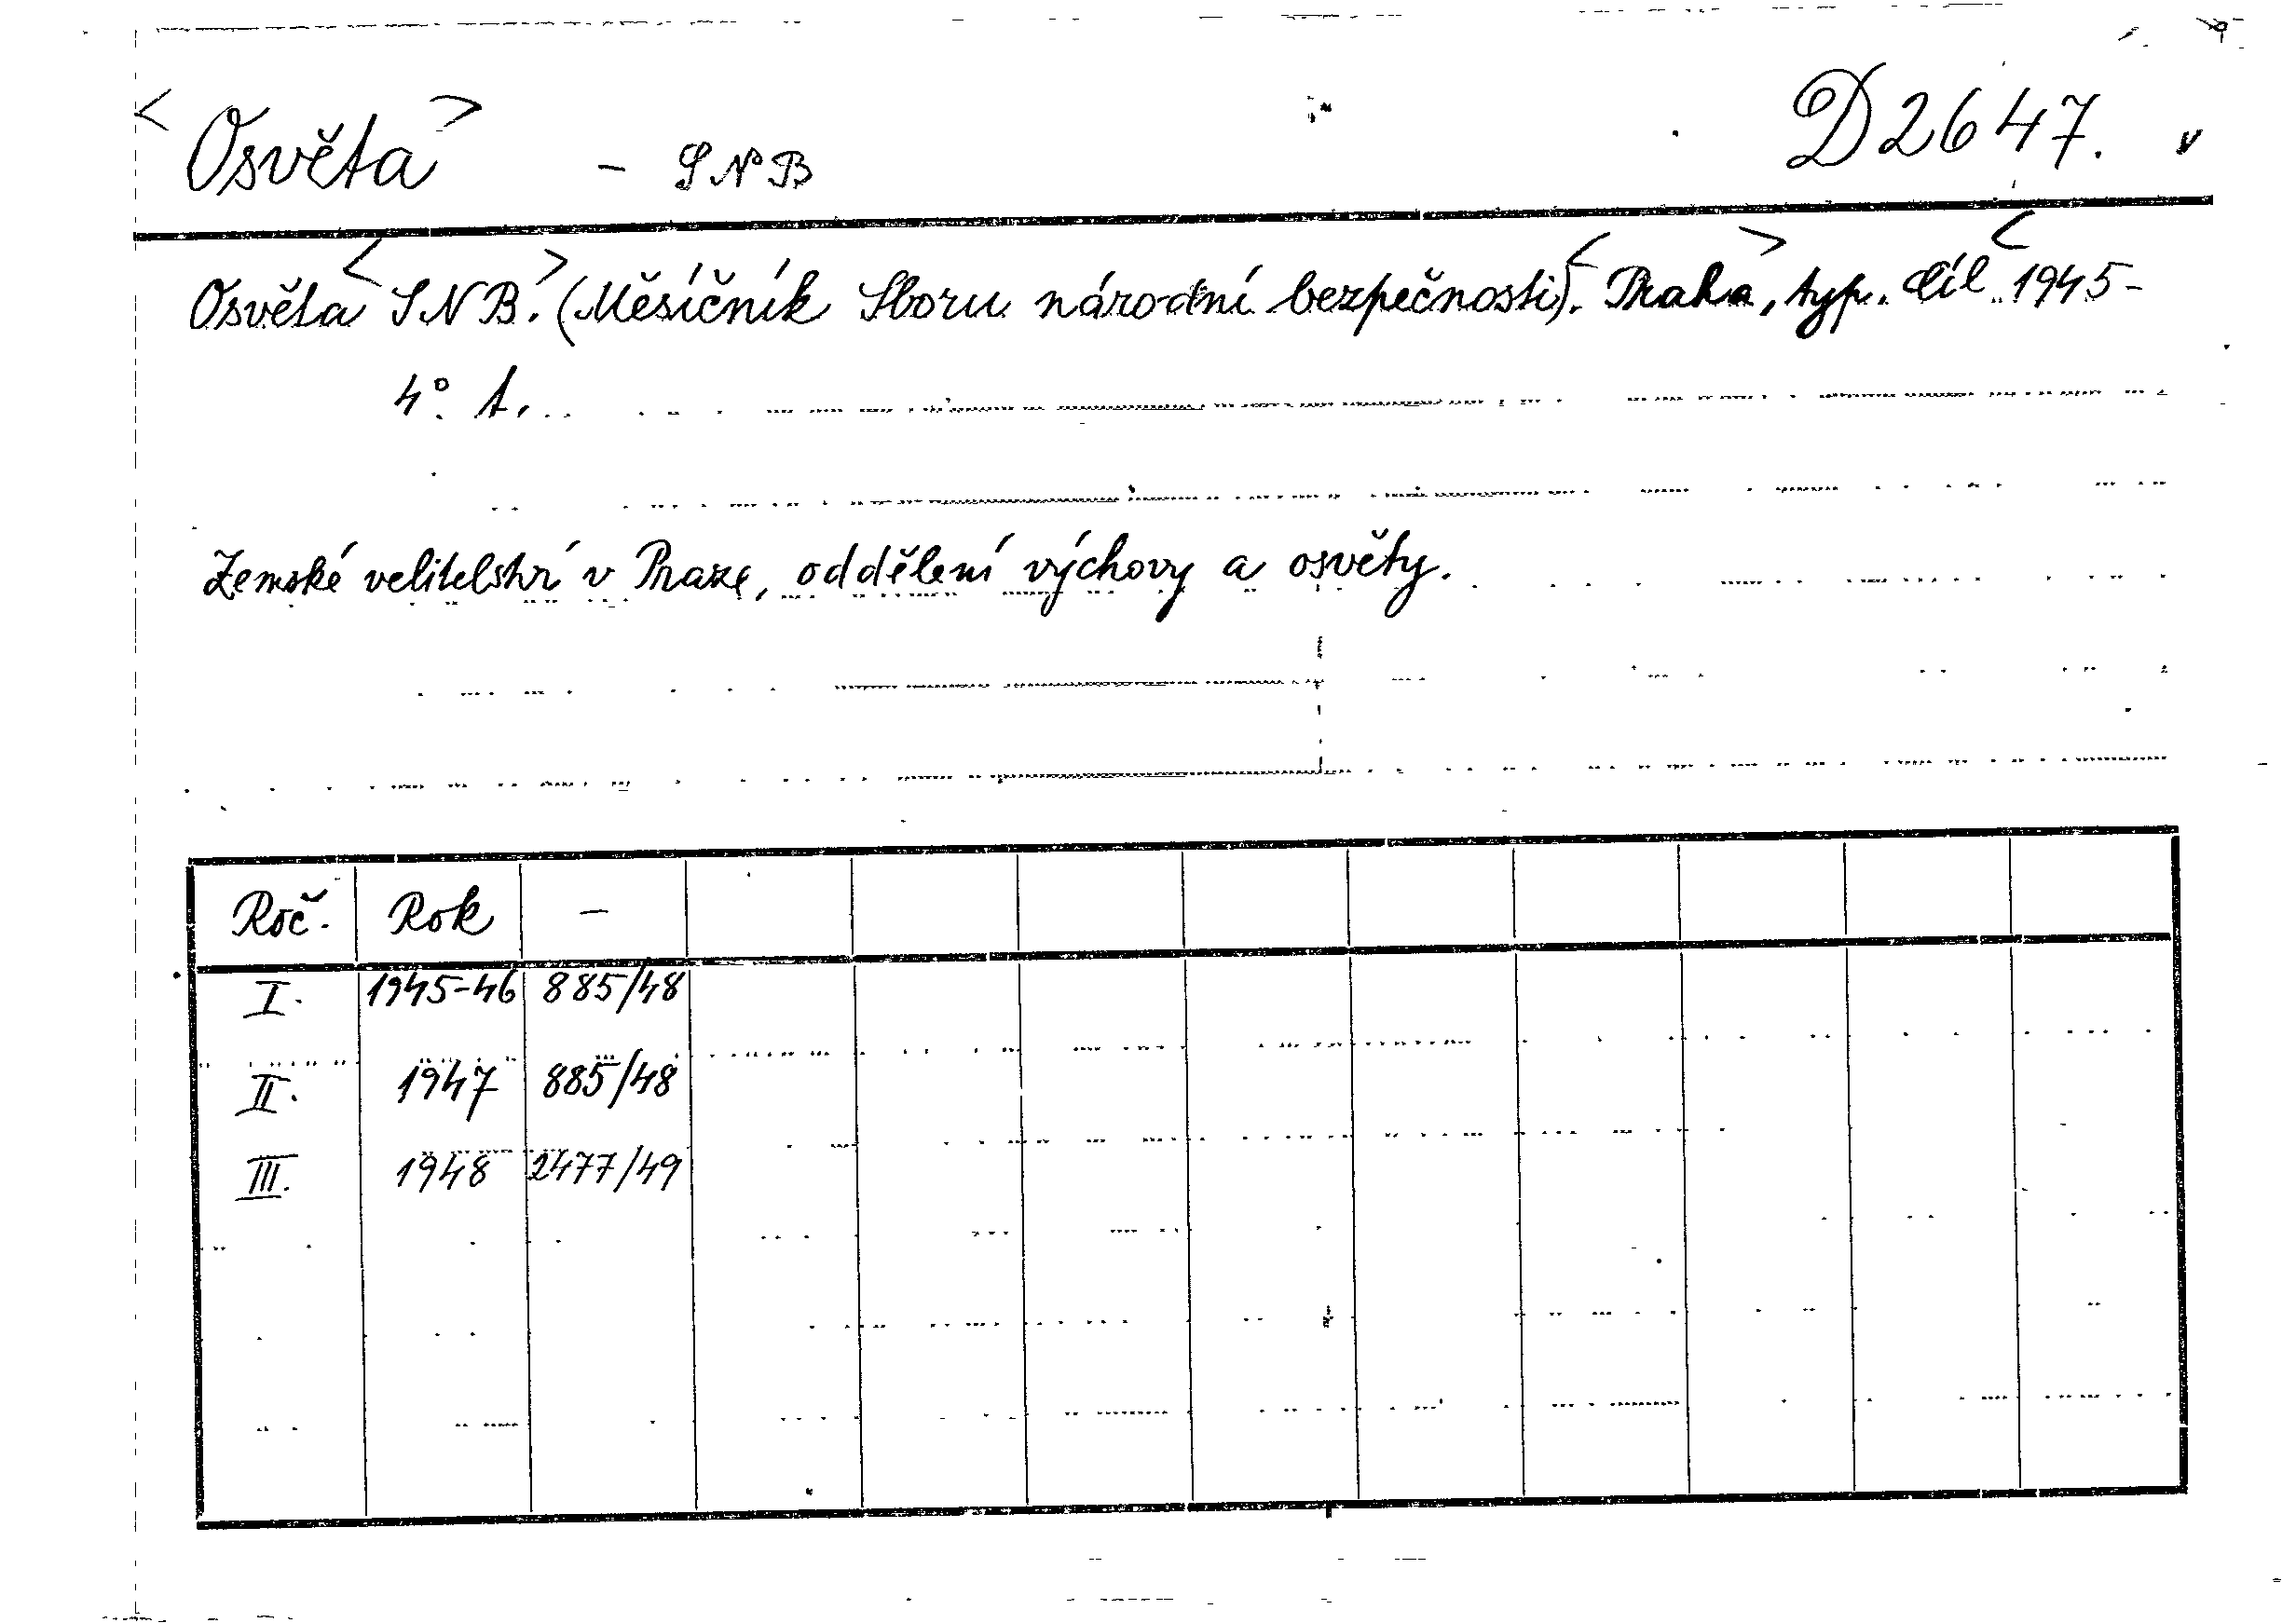 <Osvěta> - SNB D 2647. v
Osvěta <SNB.> (Měsíčník Sboru národní bezpečnosti). <Praha>, typ. díl <1945-
4°. t.
Zemské velitelství v Praze, oddělení výchovy a osvěty.
Roč. Rok -
I. 1945-46 885/48
II. 1947 885/48
III. 1948 2477/49